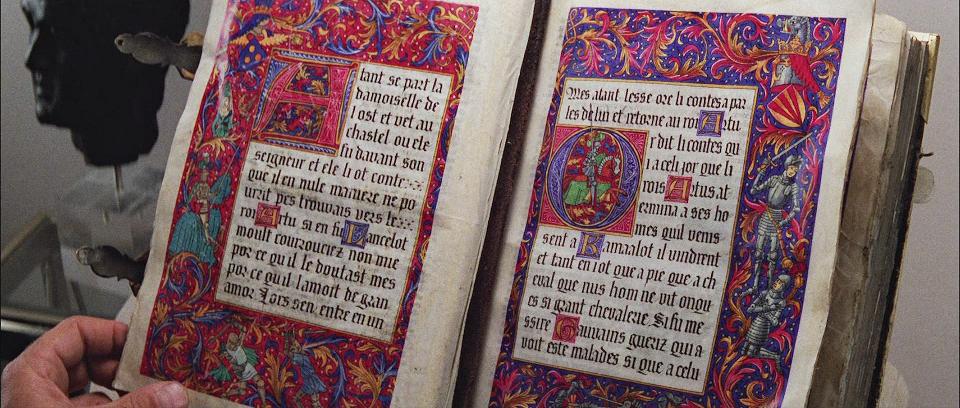 Atant se part la
damoiselle de
lost et vet au
chastel ou ele
li davant son
seigneur et ele li ot conte
que il en nule maniere ne po
urrit pes trouvais vers le
roi Artu si en fu Lancelot
moult courrouciez non mie
por ce qu il le doutast mes
por ce qu il lamoit de gran
amor Lors sen entre en un
Mes atant lesse ore li contes a par
les de lui et retorne au roi Artu
Or dit li contes qu
i a cel jor que li
rois Artus at
ermina a ses ho
mes quil venis
sent a Kamaalot il vindrent
et tant en i ot que a pie que a ch
eval que nus hom ne vit onqu
es si grant chevalerie. Si fu me
ssire Gauvains gueriz qui a
voit este malades si que a celu